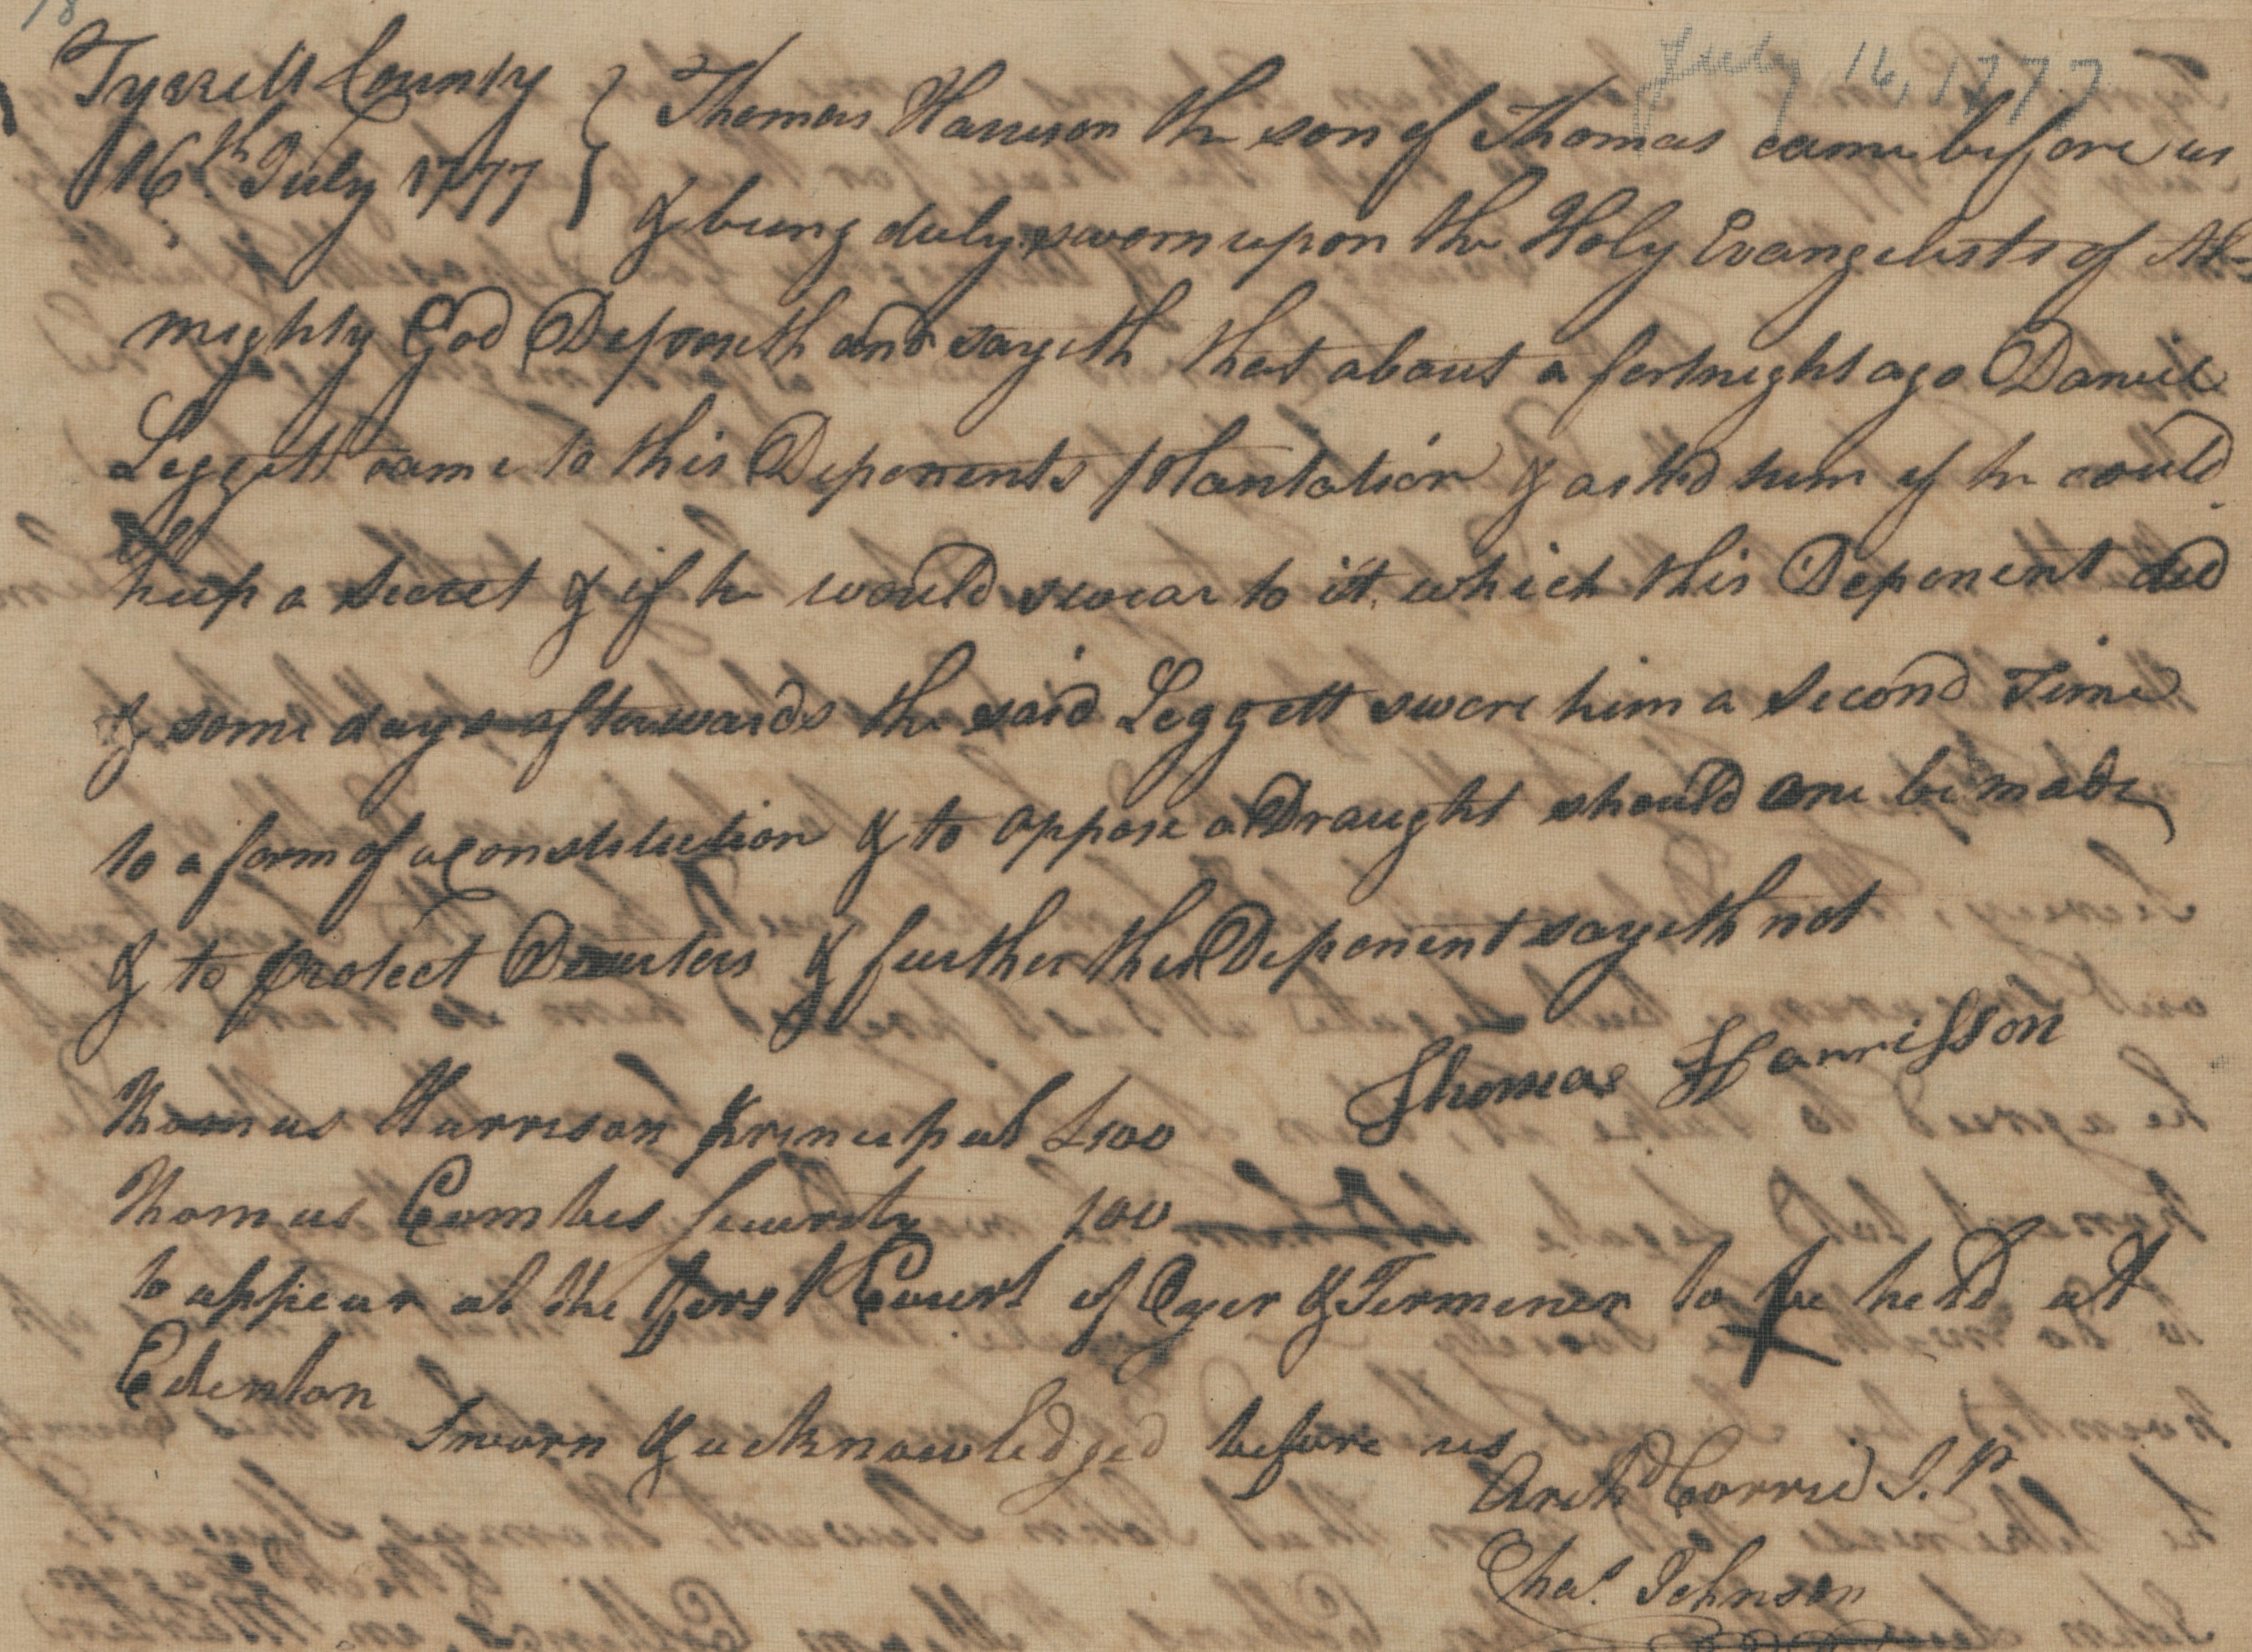 July 16, 1777
Tyrrell County } Thomas Harrison the son of Thomas came before us
16th July 1777 } & being duly sworn upon the Holy Evangelists of Al-
mighty God Deposeth and sayeth that about a fortnight ago Daniel
Leggett came to this Deponents plantation & asked him if he could
keep a secret & if he would swear to it, which this Deponent did
& some days afterwards the said Leggett swore him a second Time
to a form of a Constitution & to oppose a Draught should one be made
& to protect Deserters & further this Deponent sayeth not
Thomas Harrisson
Thomas Harrison principal £100
Thomas Cumbes Security 100
to appear at the first Court of Oyer & Terminer to be held at
Edenton
Sworn & acknowledged before us
Archd Corrie J.P
Chas. Johnson